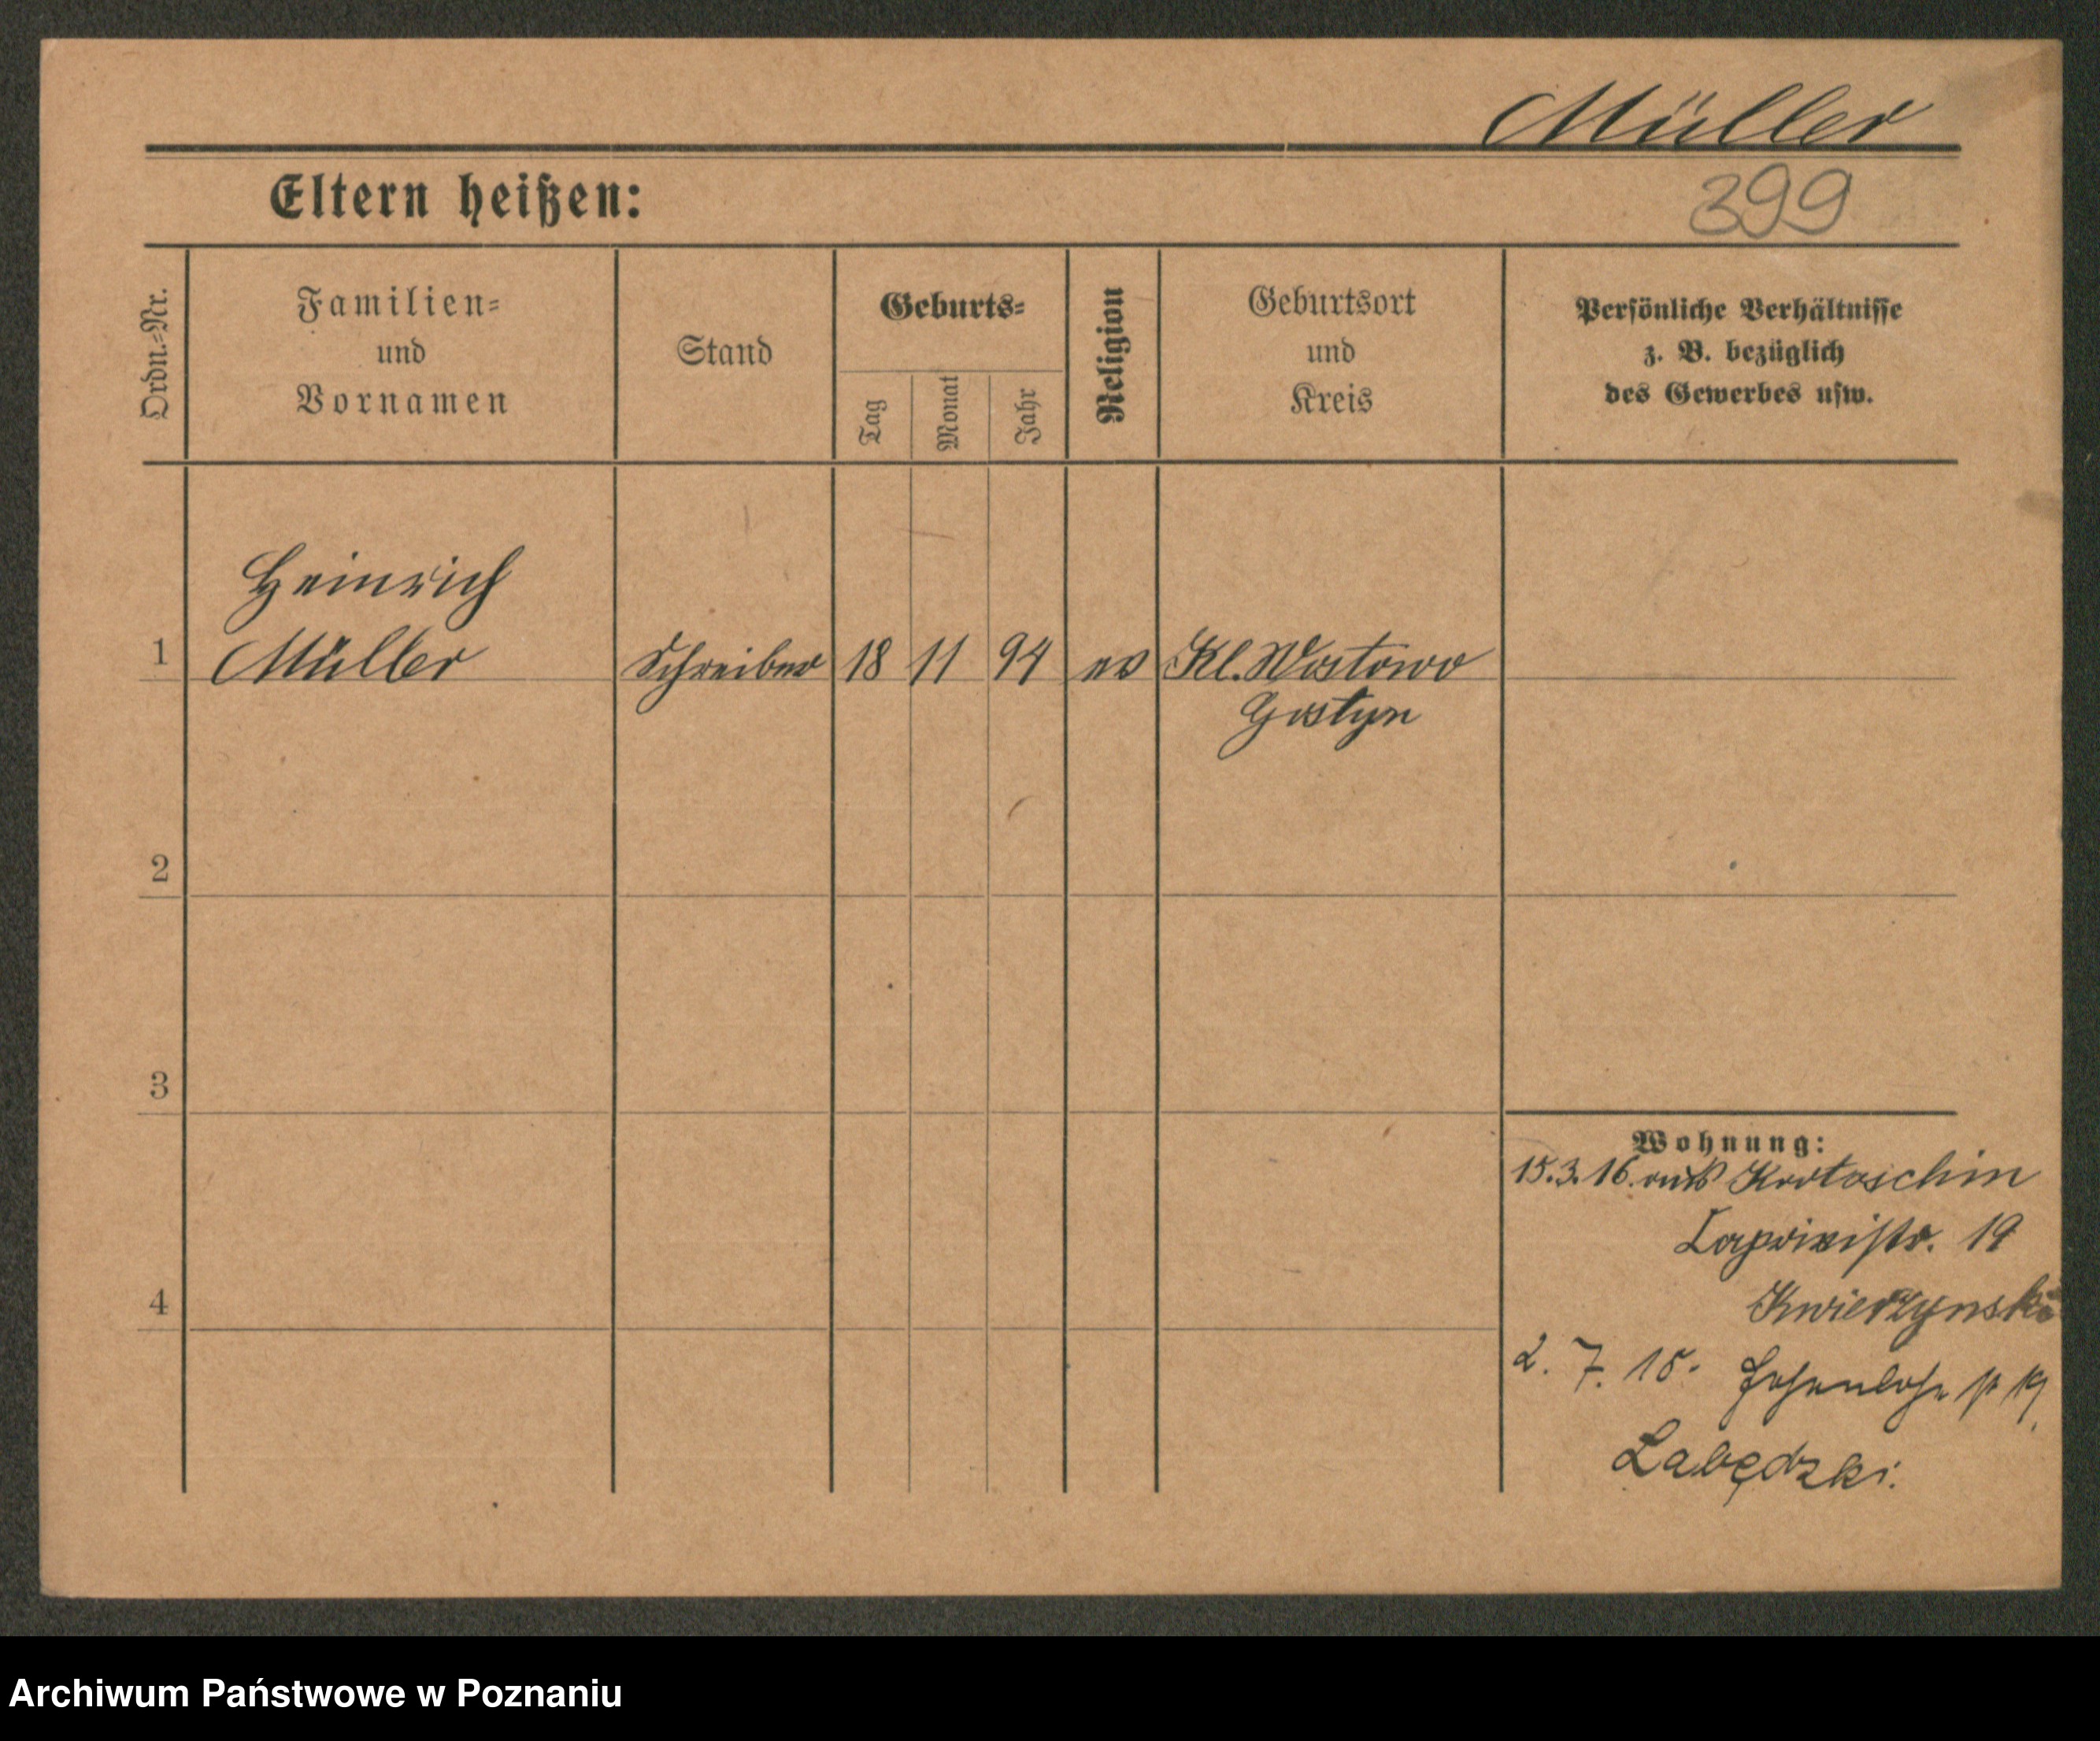 Müller
Eltern heißen:
399
Ordn.-Nr.
Familien-
und
Vornamen
Stand
Geburts-
Tag
Monat
Jahr
Religion
Geburtsort
und
Kreis
Persönliche Verhältnisse
z. B. bezüglich
des Gewerbes usw.
Heinrich
1 Müller Schreiber 18 11 94 ev Kl. Wostowo
Gostyn
2
3
4
Wohnung:
15.3.16. aus Krotoschin
19
Kwierzynski
2. 7. 15. Hohenlohe 19
Labędzki.
Archiwum Państwowe w Poznaniu